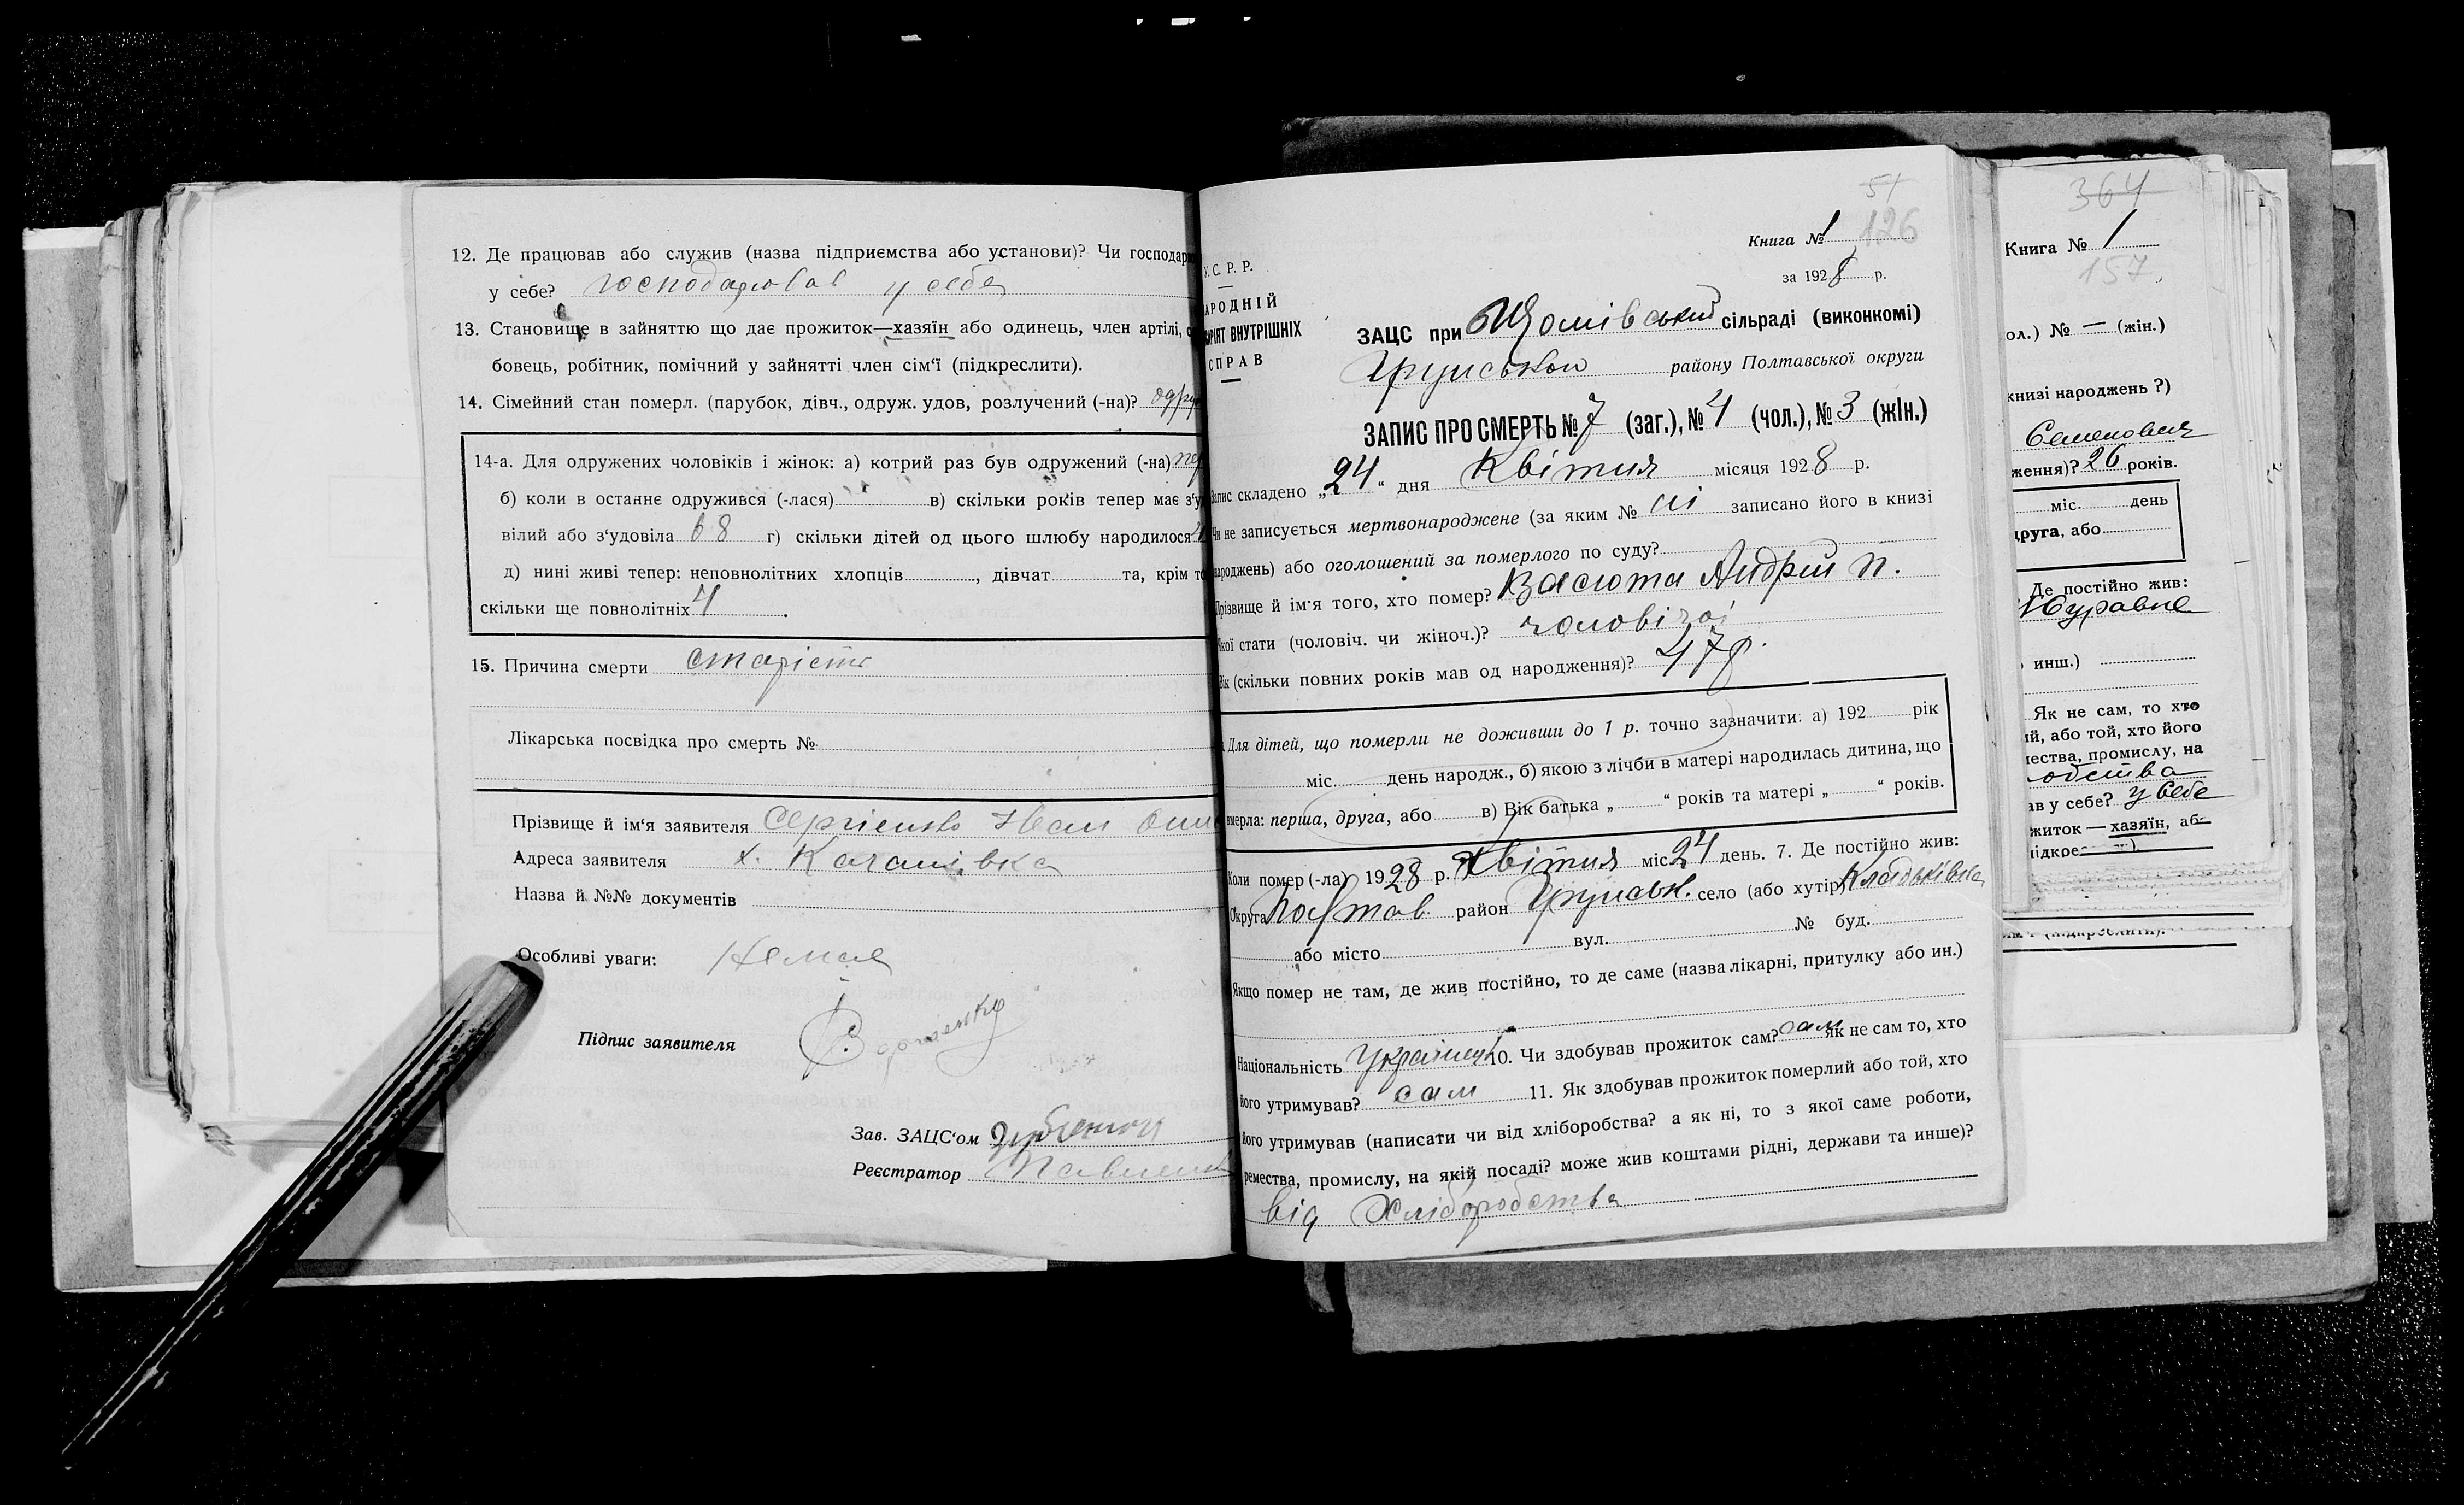 12. Де працював або служив (назва підприємства або установи)? Чи господар
у себе? господарював у себе
13. Становище в зайняттю що дає прожиток—хазяїн або одинець, член артілі,
бовець, робітник, помічний у зайнятті член сім'ї (підкреслити).
14. Сімейний стан померл. (парубок, дівч., одруж. удов, розлучений (-на)? одруж
14-а. Для одружених чоловіків і жінок: а) котрий раз був одружений (-на)
б) коли в останнє одружився (-лася) в) скільки років тепер має з'у
вілий або з'удовіла 68 г) скільки дітей од цього шлюбу народилося
д) нині живі тепер: неповнолітних хлопців , дівчат та, крім то
скільки ще повнолітніх 4 .
15. Причина смерти старість
Лікарська посвідка про смерть №
Прізвище й ім'я заявителя Сергієнко Іван
Адреса заявителя х. Качанівка
Назва й №№ документів
Особливі уваги: Немає
Підпис заявителя
Зав. ЗАЦС'ом
Реєстратор Павленко
51
126
Книга № 1
за 1928 р.
У. С. Р. Р.
АРОДНІЙ
АРІЯТ ВНУТРІШНІХ
СПРАВ
ЗАЦС при сільраді (виконкомі)
Грунськом району Полтавської округи
ЗАПИС ПРО СМЕРТЬ № 7 (заг.), № 4 (чол.), № 3 (жін.)
Запис складено „24“ дня Квітня місяця 1928 р.
Чи не записується мертвонароджене (за яким № ні записано його в книзі
народжень) або оголошений за померлого по суду?
Прізвище й ім'я того, хто помер? Васюта Андрій П.
Якої стати (чоловіч. чи жіноч.)? чоловічої
Вік (скільки повних років мав од народження)? 47 р.
Для дітей, що померли не доживши до 1 р. точно зазначити: а) 192 рік
міс. день народж., б) якою з лічби в матері народилась дитина, що
вмерла: перша, друга, або в) Вік батька „ “ років та матері „ “ років.
Коли помер (-ла) 1928 р. Квітня міс 24 день. 7. Де постійно жив:
Округа Полтав. район Грунськ. село (або хутір)
або місто вул. № буд.
Якщо помер не там, де жив постійно, то де саме (назва лікарні, притулку або ин.)
Національність Українець 10. Чи здобував прожиток сам? сам як не сам то, хто
його утримував? сам 11. Як здобував прожиток померлий або той, хто
його утримував (написати чи від хліборобства? а як ні, то з якої саме роботи,
ремества, промислу, на якій посаді? може жив коштами рідні, держави та инше)?
від Хліборобства
364
Книга № 1
157
ол.) № — (жін.)
книзі народжень ?)
Семенович
ження)? 26 років.
міс. день
друга, або
Де постійно жив:
Журавне
инш.)
Як не сам, то хто
ий, або той, хто його
ества, промислу, на
ав у себе? у себе
житок — хазяїн, або